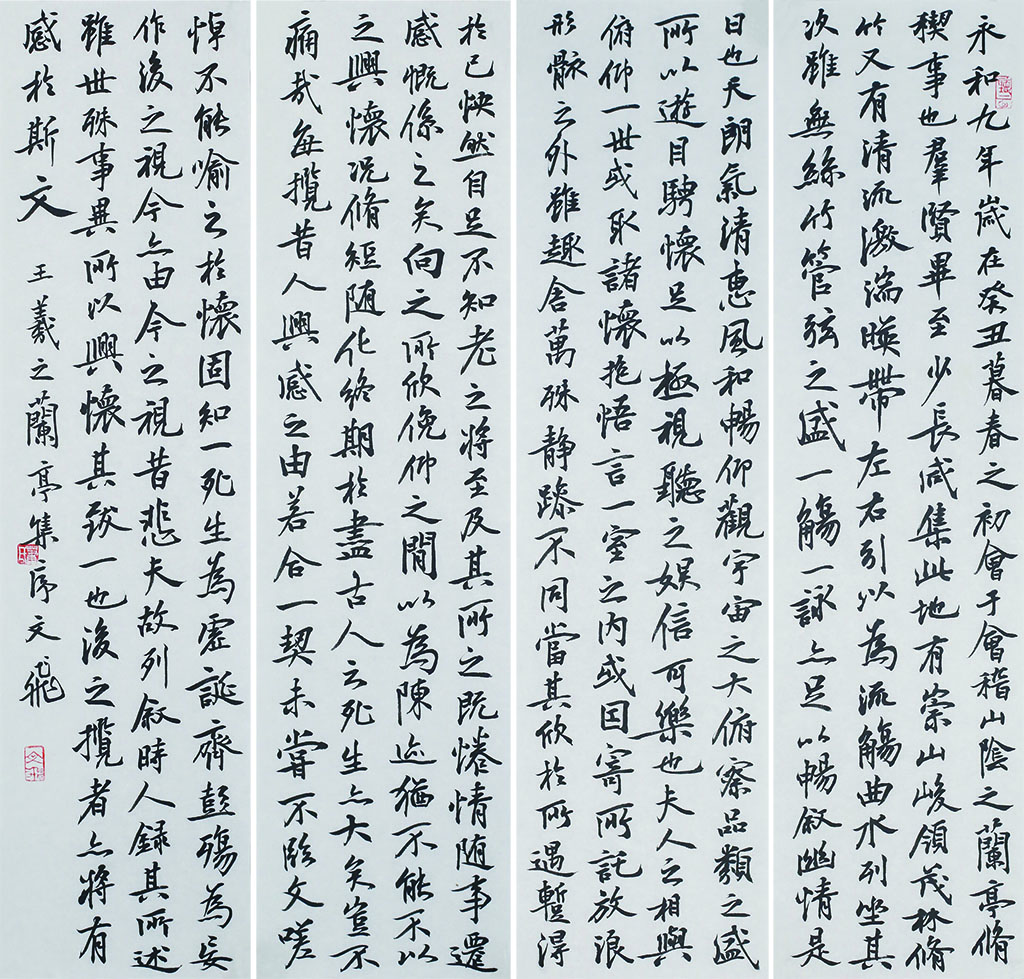 永和九年歲在癸丑暮春之初會于會稽山陰之蘭亭脩
稧事也羣賢畢至少長咸集此地有崇山峻領茂林脩
竹又有清流激湍暎帶左右引以為流觴曲水列坐其
次雖無絲竹管弦之盛一觴一詠亦足以暢敘幽情是
日也天朗氣清惠風和暢仰觀宇宙之大俯察品類之盛
所以遊目騁懷足以極視聽之娛信可樂也夫人之相與
俯仰一世或取諸懷抱悟言一室之內或因寄所託放浪
形骸之外雖趣舍萬殊靜躁不同當其欣於所遇暫得
於己怏然自足不知老之將至及其所之既惓情隨事遷
感慨係之矣向之所欣俛仰之間以為陳迹猶不能不以
之興懷況脩短隨化終期於盡古人云死生亦大矣豈不
痛哉每攬昔人興感之由若合一契未嘗不臨文嗟
悼不能喻之於懷固知一死生為虛誕齊彭殤為妄
作後之視今亦由今之視昔悲夫故列敘時人錄其所述
雖世殊事異所以興懷其致一也後之攬者亦將有
感於斯文 王羲之蘭亭集序文飛